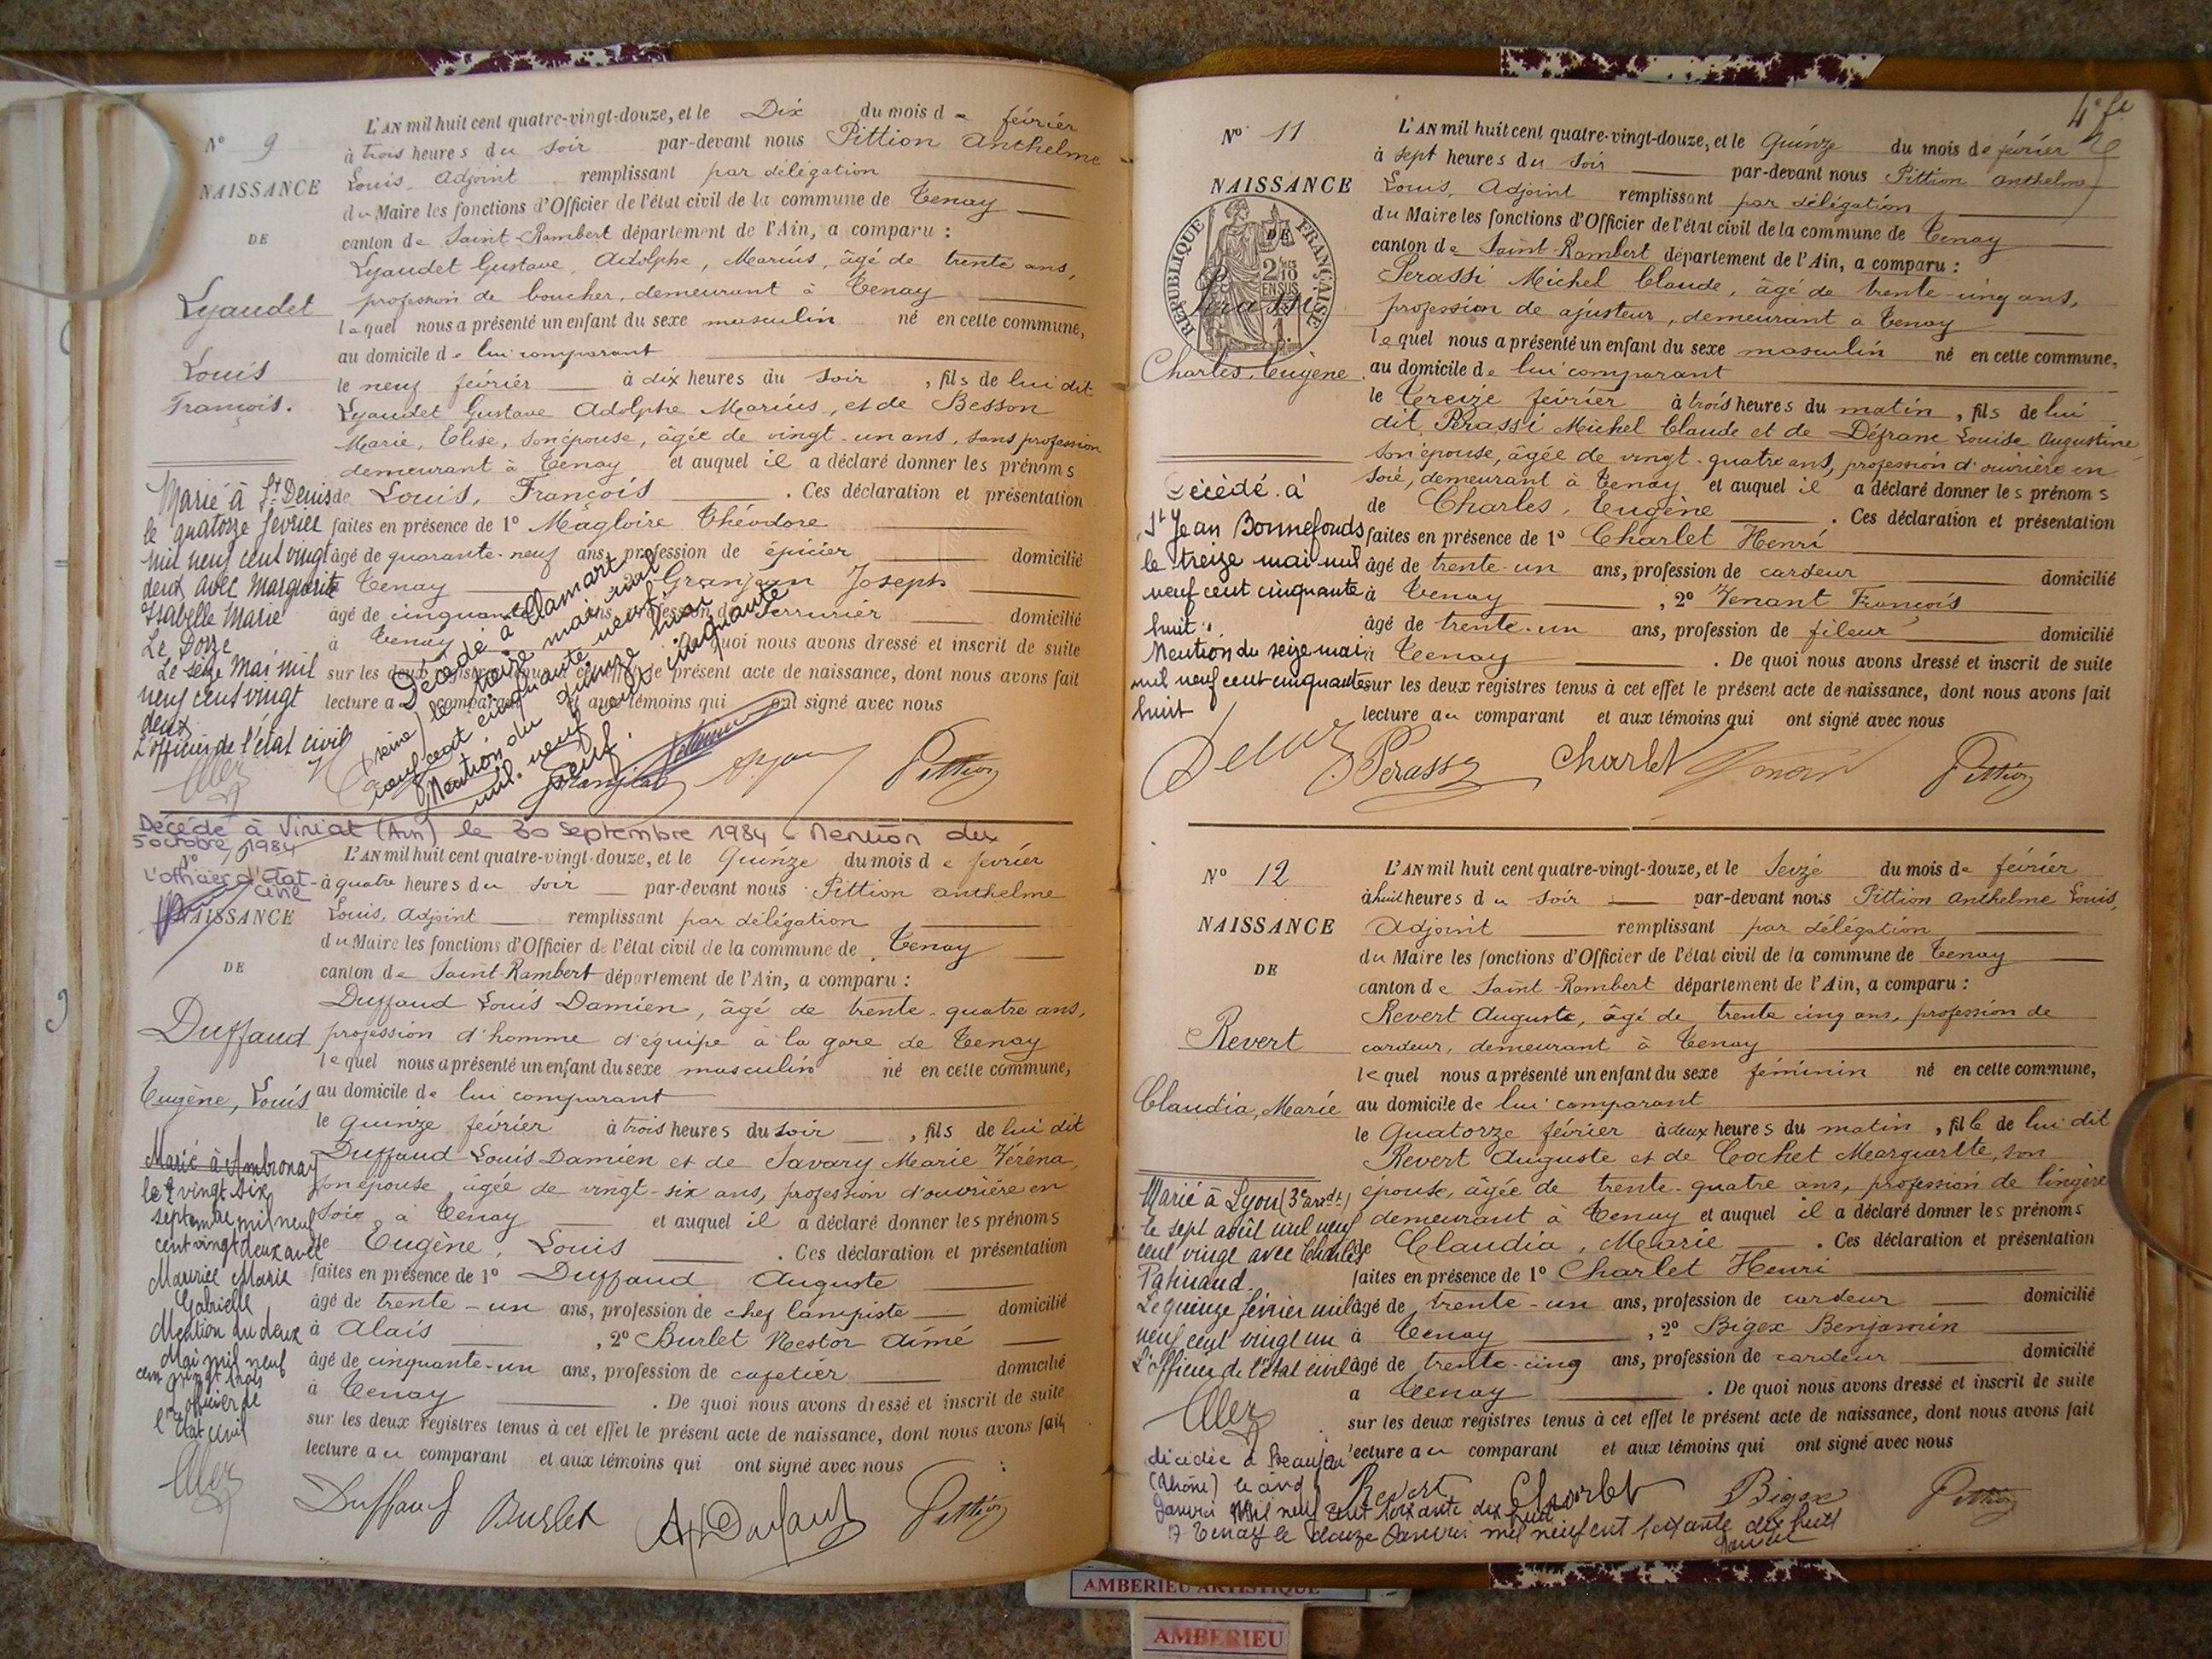 N° 9
NAISSANCE
DE
Lyaudet
Louis
François.
L'AN mil huit cent quatre-vingt-douze, et le Dix du mois de février
à trois heures du soir par-devant nous Pittion Anthelme
Louis, Adjoint remplissant par délégation
du Maire les fonctions d'Officier de l'état civil de la commune de Tenay
canton de Saint-Rambert département de l'Ain, a comparu :
Lyaudet Gustave, Adolphe, Marius, âgé de trente ans,
profession de boucher, demeurant à Tenay
lequel nous a présenté un enfant du sexe masculin né en cette commune,
au domicile de lui comparant
le neuf février à dix heures du soir, fils de lui dit
Lyaudet Gustave Adolphe Marius, et de Besson
Marie, Elise, son épouse, âgée de vingt-un ans, sans profession
demeurant à Tenay et auquel il a déclaré donner les prénoms
de Louis, François. Ces déclaration et présentation
faites en présence de 1° Magloire Théodore
âgé de quarante-neuf ans, profession de épicier domicilié
Tenay Granjean Joseph
âgé de cinquante ans, profession de Serrurier domicilié
à Tenay quoi nous avons dressé et inscrit de suite
sur les deux présent acte de naissance, dont nous avons fait
lecture a comparant et aux témoins qui ont signé avec nous
Pittion
Marié à St Denis
le quatorze février
mil neuf cent vingt
deux avec Marguerite
Isabelle Marie
Le Dorze
Le seize Mai mil
neuf cent vingt
deux
L'officier de l'état civil
Décédé à Clamart
(seine) le treize mai mil
neuf cent cinquante neuf.
Mention du quinze mai
mil neuf cent cinquante
neuf.
Décédé à Viriat (Ain) le 30 Septembre 1984. Mention du
5 octobre 1984
L'officier d'Etat-
civil
NAISSANCE
DE
Duffaud
Eugène, Louis
L'AN mil huit cent quatre-vingt-douze, et le Quinze du mois de février
à quatre heures du soir par-devant nous Pittion anthelme
Louis, Adjoint remplissant par délégation
du Maire les fonctions d'Officier de l'état civil de la commune de Tenay
canton de Saint-Rambert département de l'Ain, a comparu :
Duffaud Louis Damien, âgé de trente-quatre ans,
profession d'homme d'équipe à la gare de Tenay
lequel nous a présenté un enfant du sexe masculin né en cette commune,
au domicile de lui comparant
le quinze février à trois heures du soir, fils de lui dit
Duffaud Louis Damien et de Savary Marie Véréna,
son épouse, âgée de vingt-six ans, profession d'ouvrière en
soie à Tenay et auquel il a déclaré donner les prénoms
de Eugène, Louis. Ces déclaration et présentation
faites en présence de 1° Duffaud Auguste
âgé de trente-un ans, profession de chef lampiste domicilié
à Alais, 2° Burlet Nestor Aimé
âgé de cinquante-un ans, profession de cafetier domicilié
à Tenay. De quoi nous avons dressé et inscrit de suite
sur les deux registres tenus à cet effet le présent acte de naissance, dont nous avons fait
lecture au comparant et aux témoins qui ont signé avec nous
Duffaud Burlet Pittion
Marié à Ambronay
le vingt six
septembre mil neuf
cent vingt deux avec
Maurice Marie
Gabrielle
Mention du deux
Mai mil neuf
cent vingt trois
L'officier de
l'Etat civil
4e ft
N° 11
NAISSANCE
DE
REPUBLIQUE FRANÇAISE
2/10 EN SUS
Perassi
Charles, Eugène
L'AN mil huit cent quatre-vingt-douze, et le Quinze du mois de février
à sept heures du soir par-devant nous Pittion anthelme
Louis, Adjoint remplissant par délégation
du Maire les fonctions d'Officier de l'état civil de la commune de Tenay
canton de Saint-Rambert département de l'Ain, a comparu :
Perassi Michel Claude, âgé de trente-cinq ans,
profession de ajusteur, demeurant à Tenay
lequel nous a présenté un enfant du sexe masculin né en cette commune,
au domicile de lui comparant
le Treize février à trois heures du matin, fils de lui
dit Perassi Michel Claude et de Défranc Louise Augustine,
son épouse, âgée de vingt-quatre ans, profession d'ouvrière en
soie, demeurant à Tenay et auquel il a déclaré donner les prénoms
de Charles, Eugène. Ces déclaration et présentation
faites en présence de 1° Charlet Henri
âgé de trente-un ans, profession de cardeur domicilié
à Tenay, 2° Venant François
âgé de trente-un ans, profession de fileur domicilié
à Tenay. De quoi nous avons dressé et inscrit de suite
sur les deux registres tenus à cet effet le présent acte de naissance, dont nous avons fait
lecture au comparant et aux témoins qui ont signé avec nous
Perassi Charlet Pittion
Décédé à
St Jean Bonnefonds
le treize mai mil
neuf cent cinquante
huit.
Mention du seize mai
mil neuf cent cinquante
huit
N° 12
NAISSANCE
DE
Revert
Claudia, Marie
L'AN mil huit cent quatre-vingt-douze, et le Seize du mois de février
à huit heures du soir par-devant nous Pittion Anthelme Louis,
Adjoint remplissant par délégation
du Maire les fonctions d'Officier de l'état civil de la commune de Tenay
canton de Saint-Rambert département de l'Ain, a comparu :
Revert Auguste, âgé de trente cinq ans, profession de
cardeur, demeurant à Tenay
lequel nous a présenté un enfant du sexe féminin né en cette commune,
au domicile de lui comparant
le Quatorze février à deux heures du matin, fille de lui dit
Revert Auguste et de Cochet Marguerite, son
épouse, âgée de trente-quatre ans, profession de lingère
demeurant à Tenay et auquel il a déclaré donner les prénoms
de Claudia, Marie. Ces déclaration et présentation
faites en présence de 1° Charlet Henri
âgé de trente-un ans, profession de cardeur domicilié
à Tenay, 2° Bigex Benjamin
âgé de trente-cinq ans, profession de cardeur domicilié
a Tenay. De quoi nous avons dressé et inscrit de suite
sur les deux registres tenus à cet effet le présent acte de naissance, dont nous avons fait
lecture au comparant et aux témoins qui ont signé avec nous
Revert Charlet Bigex Pittion
Marié à Lyon (3e arrdt)
le sept août mil neuf
cent vingt avec Charles
Patuaud.
Le quinze février mil
neuf cent vingt un
L'officier de l'état civil
décédée à Beaujeu
(Rhône) le cinq
Janvier mil neuf cent soixante dix huit
A Tenay le douze Janvier mil neuf cent soixante dix huit
AMBERIEU ARTISTIQUE
AMBERIEU